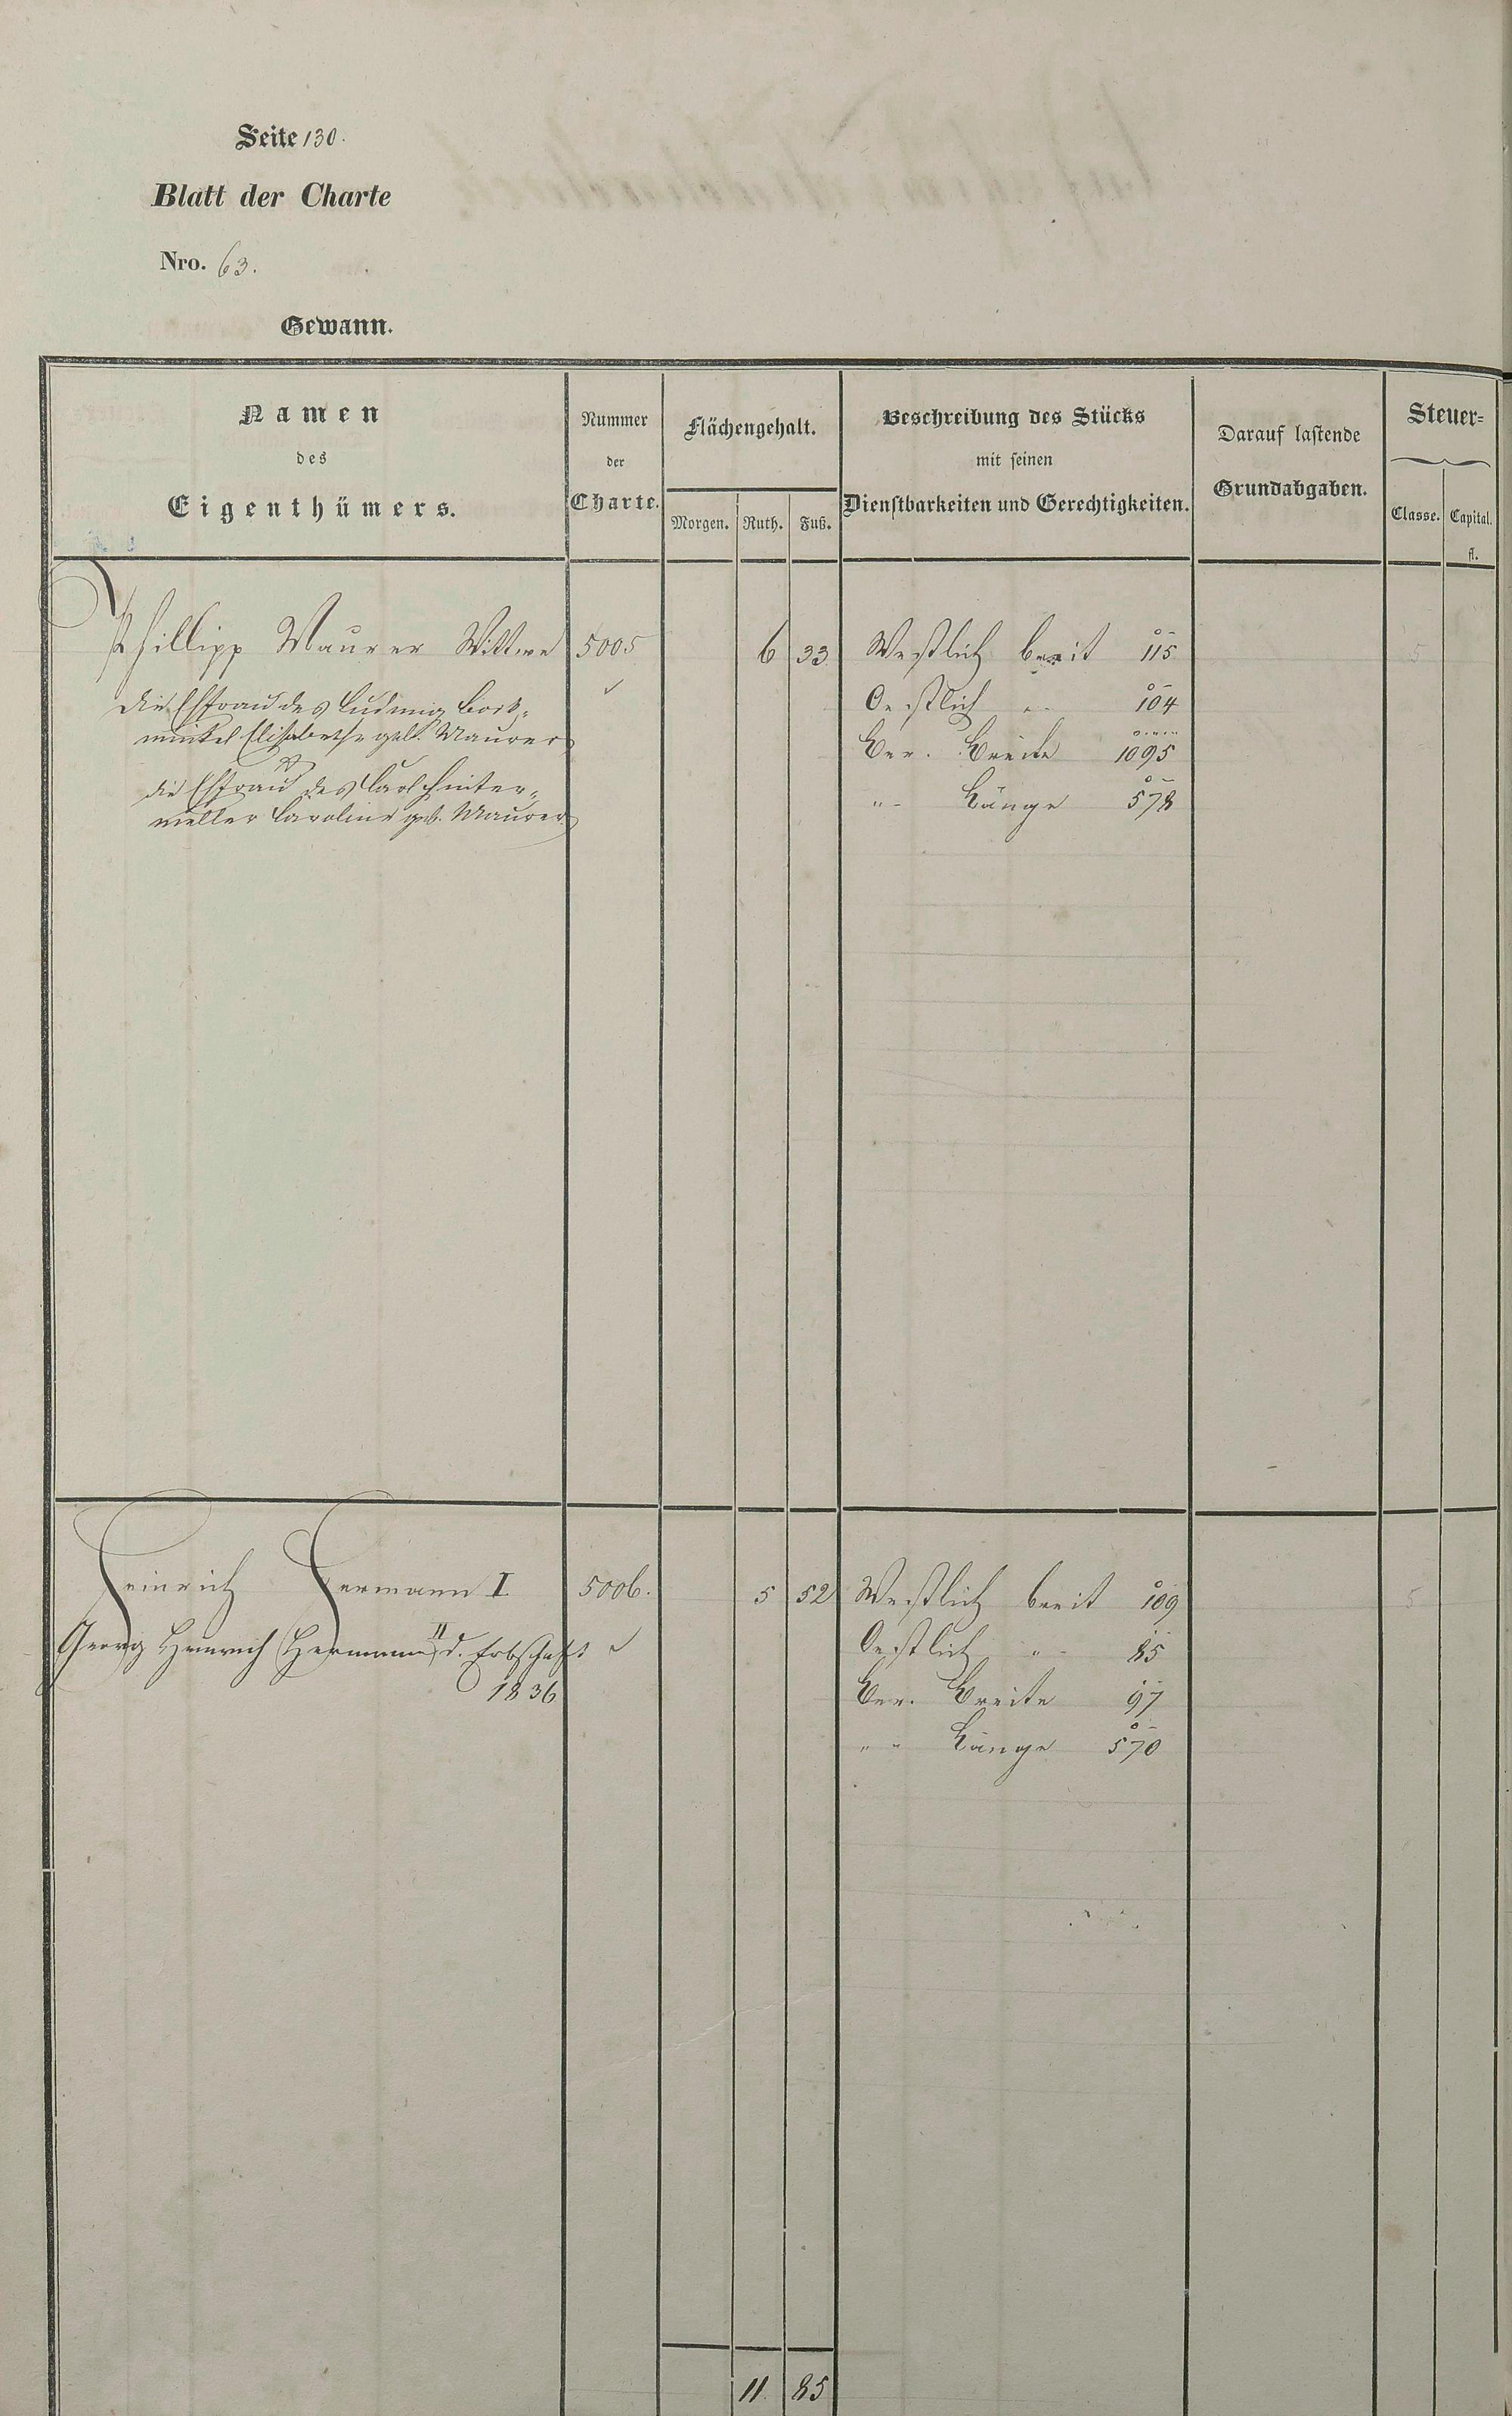 Seite 130.
Blatt der Charte
Nro. 63.
Gewann.
Namen
des
Eigenthümers.
Nummer
der
Charte.
Flächengehalt.
Morgen. Ruth. Fuß.
Beschreibung des Stücks
mit seinen
Dienstbarkeiten und Gerechtigkeiten.
Darauf lastende
Grundabgaben.
Steuer=
Classe. Capital.
fl.
Phillipp Maurer Wittwe 5005 6 33 Westlich breit 115 5
die Ehfrau des Ludwig Oestlich " 104
Elisabethe geb. Maurer Ber. Breite 1095
die Ehfrau des Carl Hinter= "- Länge 578
meller Caroline geb. Maurer
Heinrich Hermann I 5006. 5 52 Westlich breit 109 5
Georg Heinrich Hermann II d. Erbschaft Oestlich " 85
1836 Ber. Breite 97
" " Länge 570
11. 85